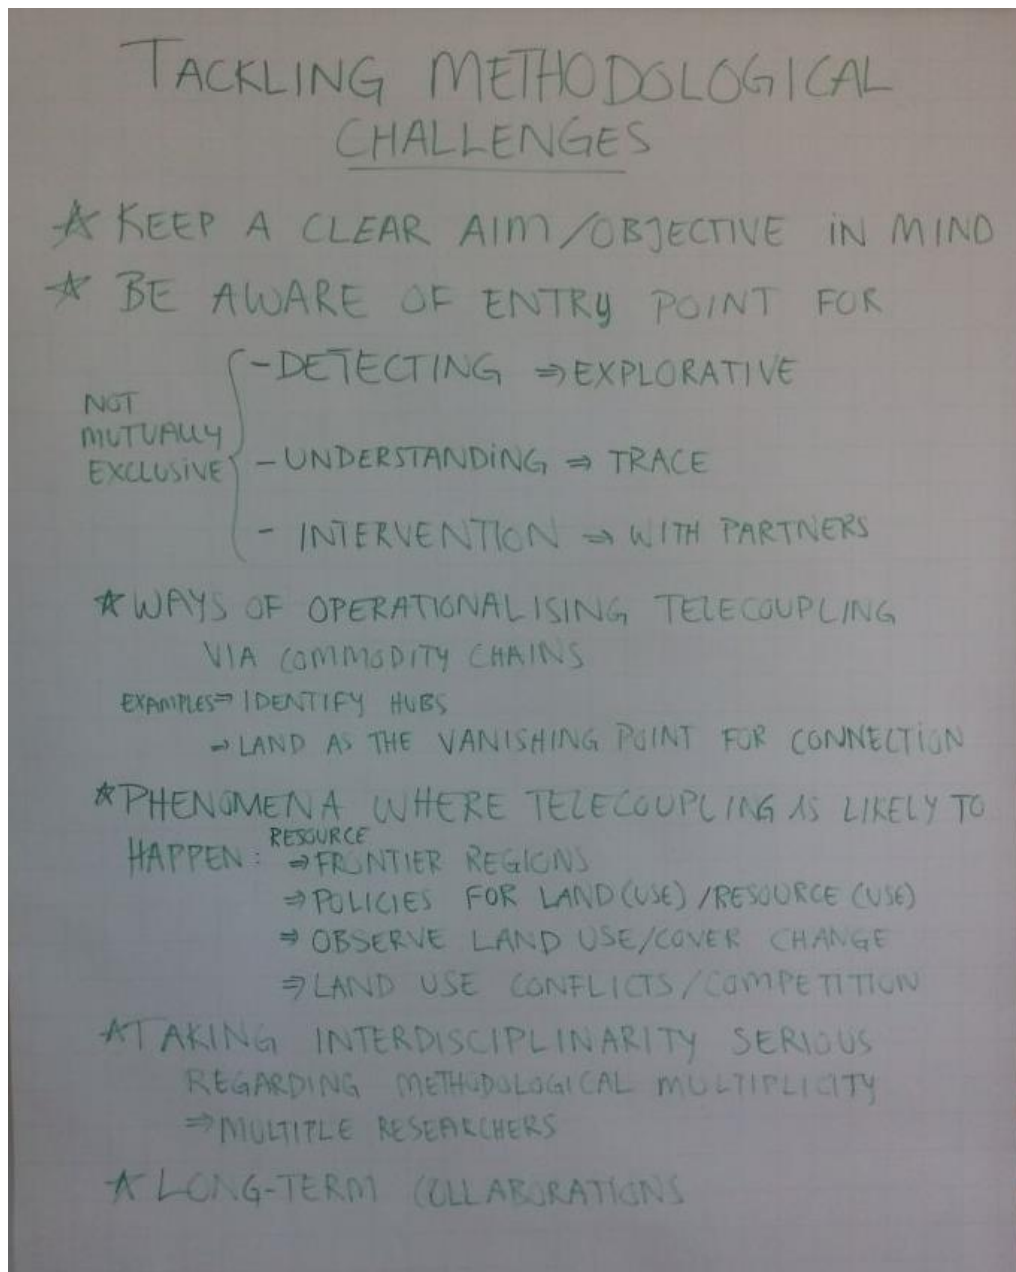 TACKLING METHODOLOGICAL
CHALLENGES
☆ KEEP A CLEAR AIM/OBJECTIVE IN MIND
☆ BE AWARE OF ENTRY POINT FOR
- DETECTING ⇒ EXPLORATIVE
NOT
MUTUALLY
EXCLUSIVE
- UNDERSTANDING ⇒ TRACE
- INTERVENTION ⇒ WITH PARTNERS
☆ WAYS OF OPERATIONALISING TELECOUPLING
VIA COMMODITY CHAINS
EXAMPLES ⇒ IDENTIFY HUBS
⇒ LAND AS THE VANISHING POINT FOR CONNECTION
☆ PHENOMENA WHERE TELECOUPLING IS LIKELY TO
HAPPEN: ⇒ RESOURCE FRONTIER REGIONS
⇒ POLICIES FOR LAND (USE) / RESOURCE (USE)
⇒ OBSERVE LAND USE/COVER CHANGE
⇒ LAND USE CONFLICTS/COMPETITION
☆ TAKING INTERDISCIPLINARITY SERIOUS
REGARDING METHODOLOGICAL MULTIPLICITY
⇒ MULTIPLE RESEARCHERS
☆ LONG-TERM COLLABORATIONS